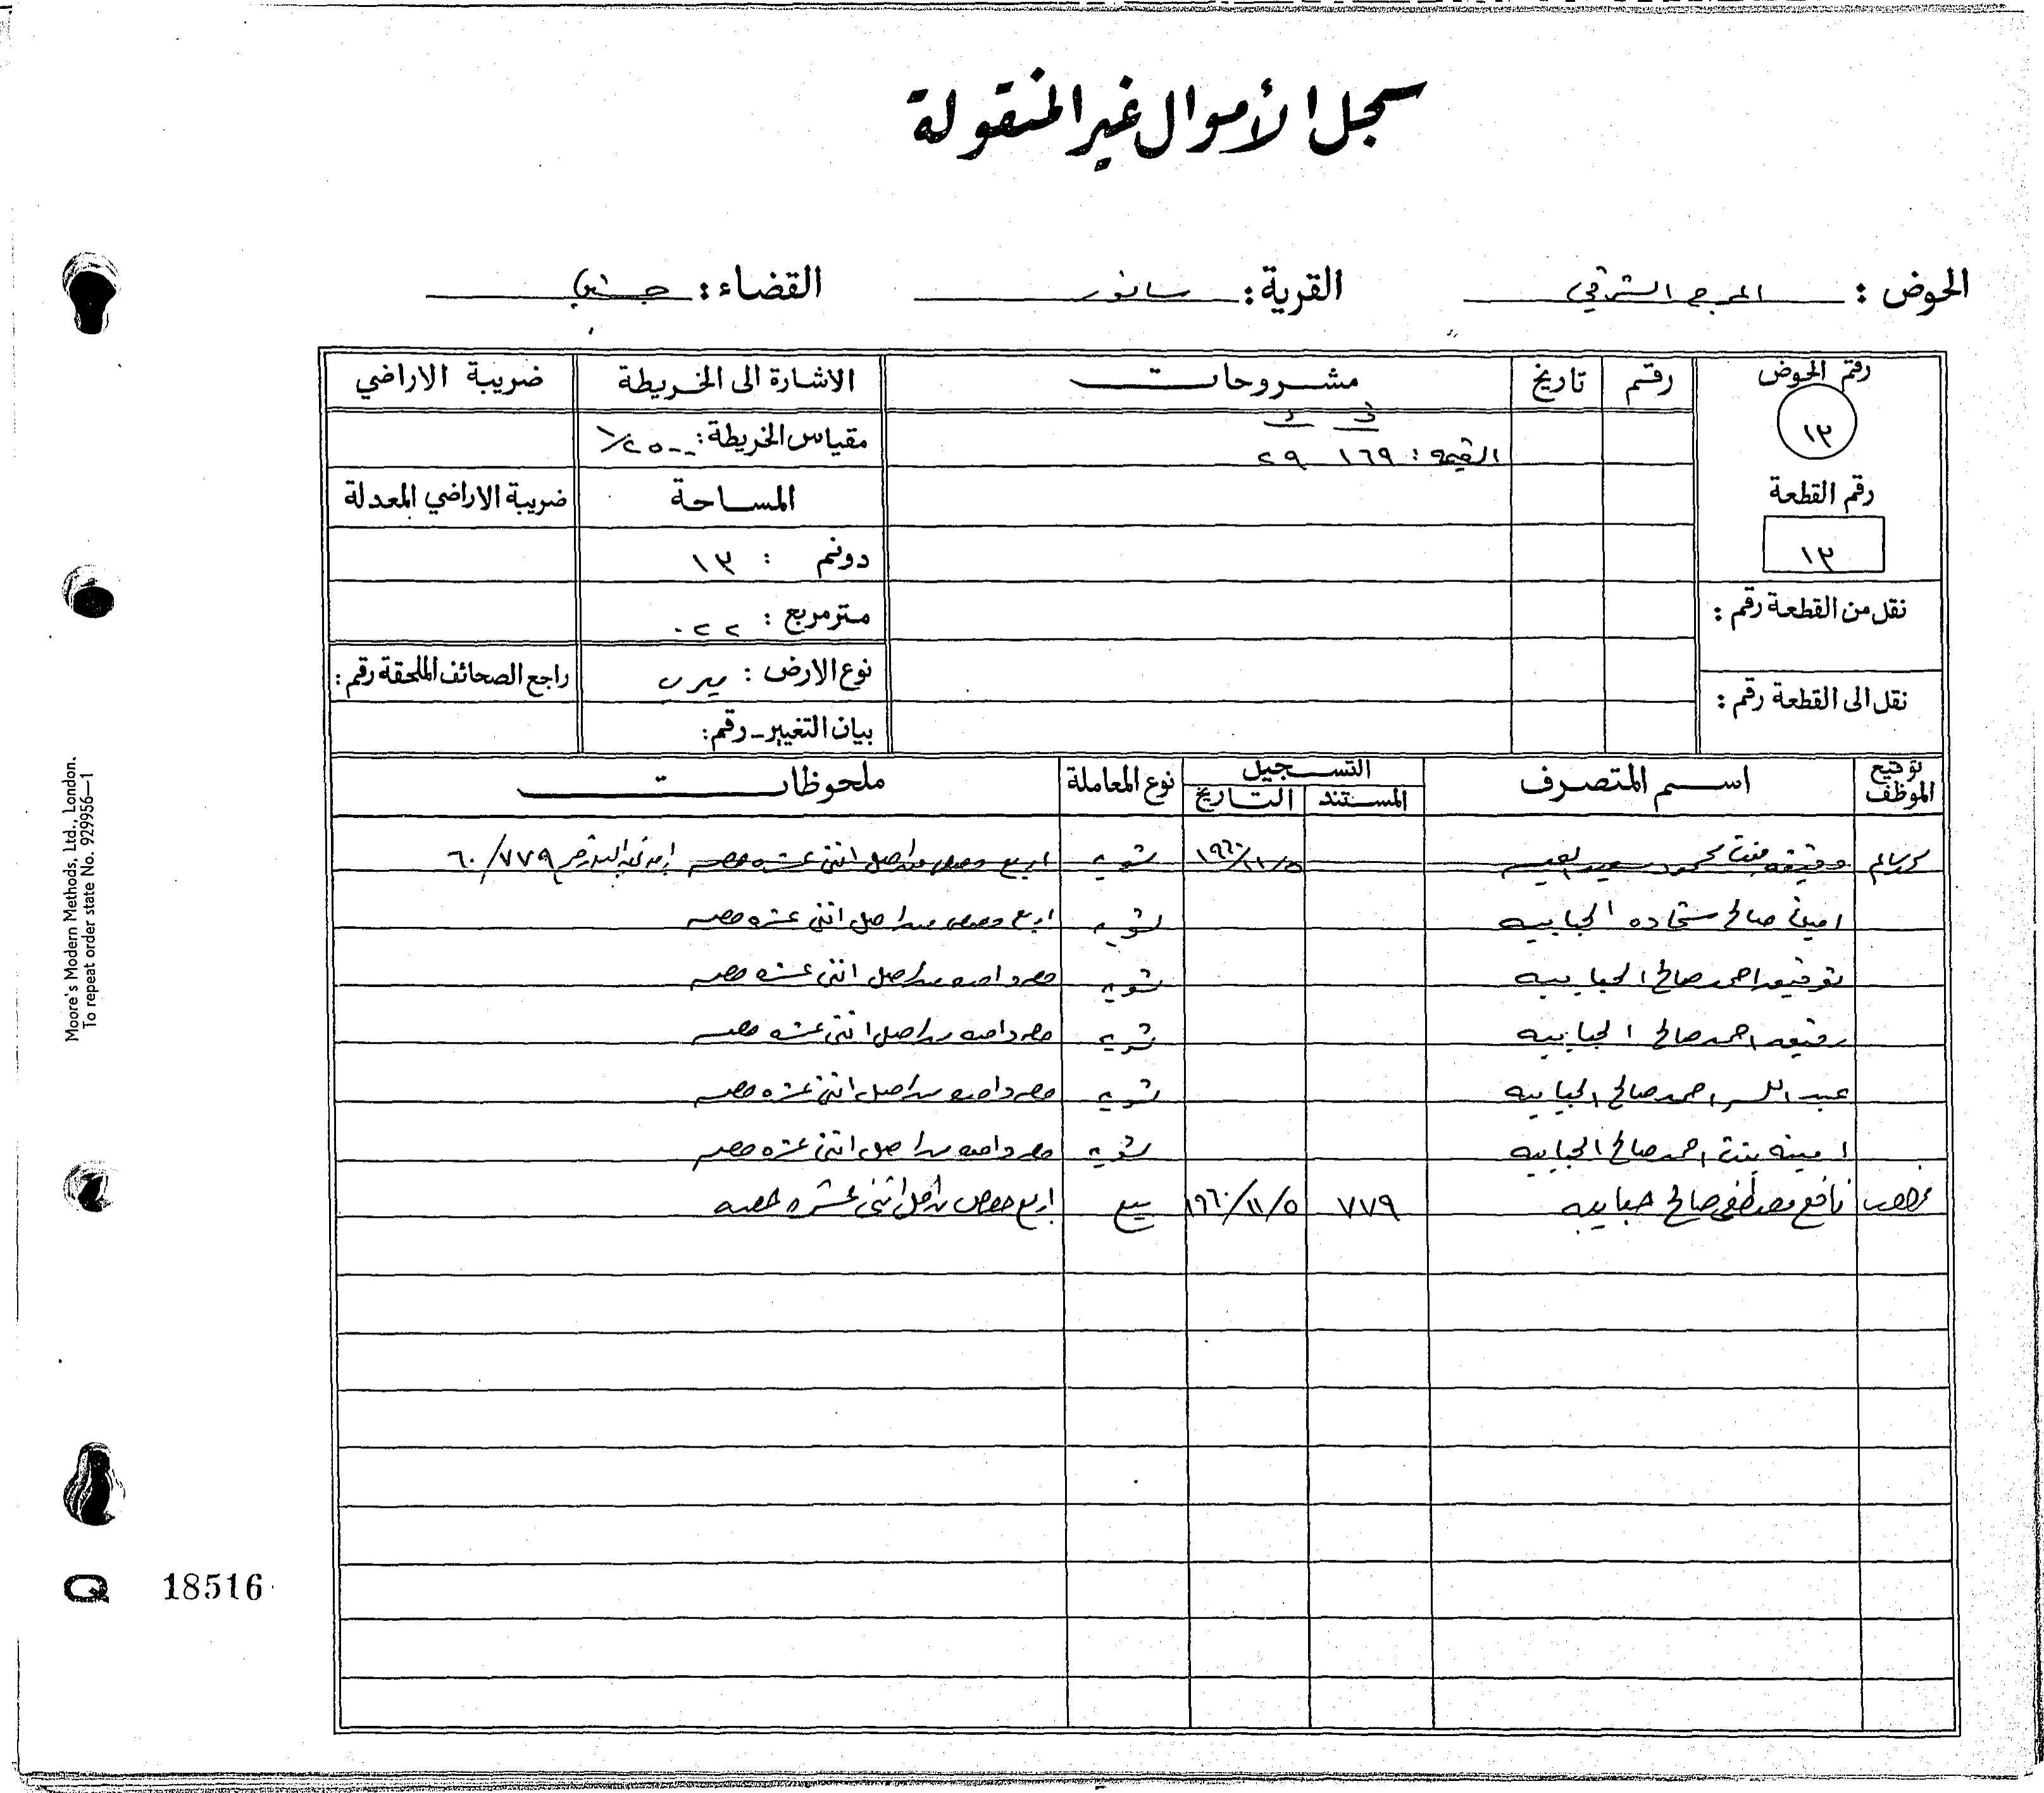 سجل الأموال غير المنقولة
الحوض : المرج الشرقي القرية : سانور القضاء : جنين
رقم الحوض رقم تاريخ مشروحات الاشارة الى الخريطة ضريبة الاراضي
١٣
ف د
القيمة : ١٦٩ ٢٩
مقياس الخريطة : ١/٢٥٠٠
رقم القطعة
١٣
المساحة ضريبة الاراضي المعدلة
دونم : ١٣
متر مربع : ٠٢٢
نقل من القطعة رقم :
نوع الارض : ميري راجع الصحائف الملحقة رقم :
نقل الى القطعة رقم :
بيان التغيير - رقم :
توقيع الموظف اسم المتصرف التسجيل نوع المعاملة ملحوظات
المستند التاريخ
بنت محمود سعيد ١٩٦٠/١١/٥ تسويه اربع حصص من اصل اثنى عشره حصه ٦٠/٧٧٩
امين صالح شحاده الحبايبه تسويه اربع حصص من اصل اثنى عشره حصه
توفيق احمد صالح الحبايبه تسويه حصه واحده من اصل اثنى عشره حصه
رفيقه احمد صالح الحبايبه تسويه حصه واحده من اصل اثنى عشره حصه
عبد الله احمد صالح الحبايبه تسويه حصه واحده من اصل اثنى عشره حصه
امينه بنت احمد صالح الحبايبه تسويه حصه واحده من اصل اثنى عشره حصه
نافع مصطفى صالح حبايبه ٧٧٩ ١٩٦٠/١١/٥ بيع اربع حصص من اصل اثنى عشره حصه
Moore's Modern Methods, Ltd., London.
To repeat order state No. 929956—1
Q 18516